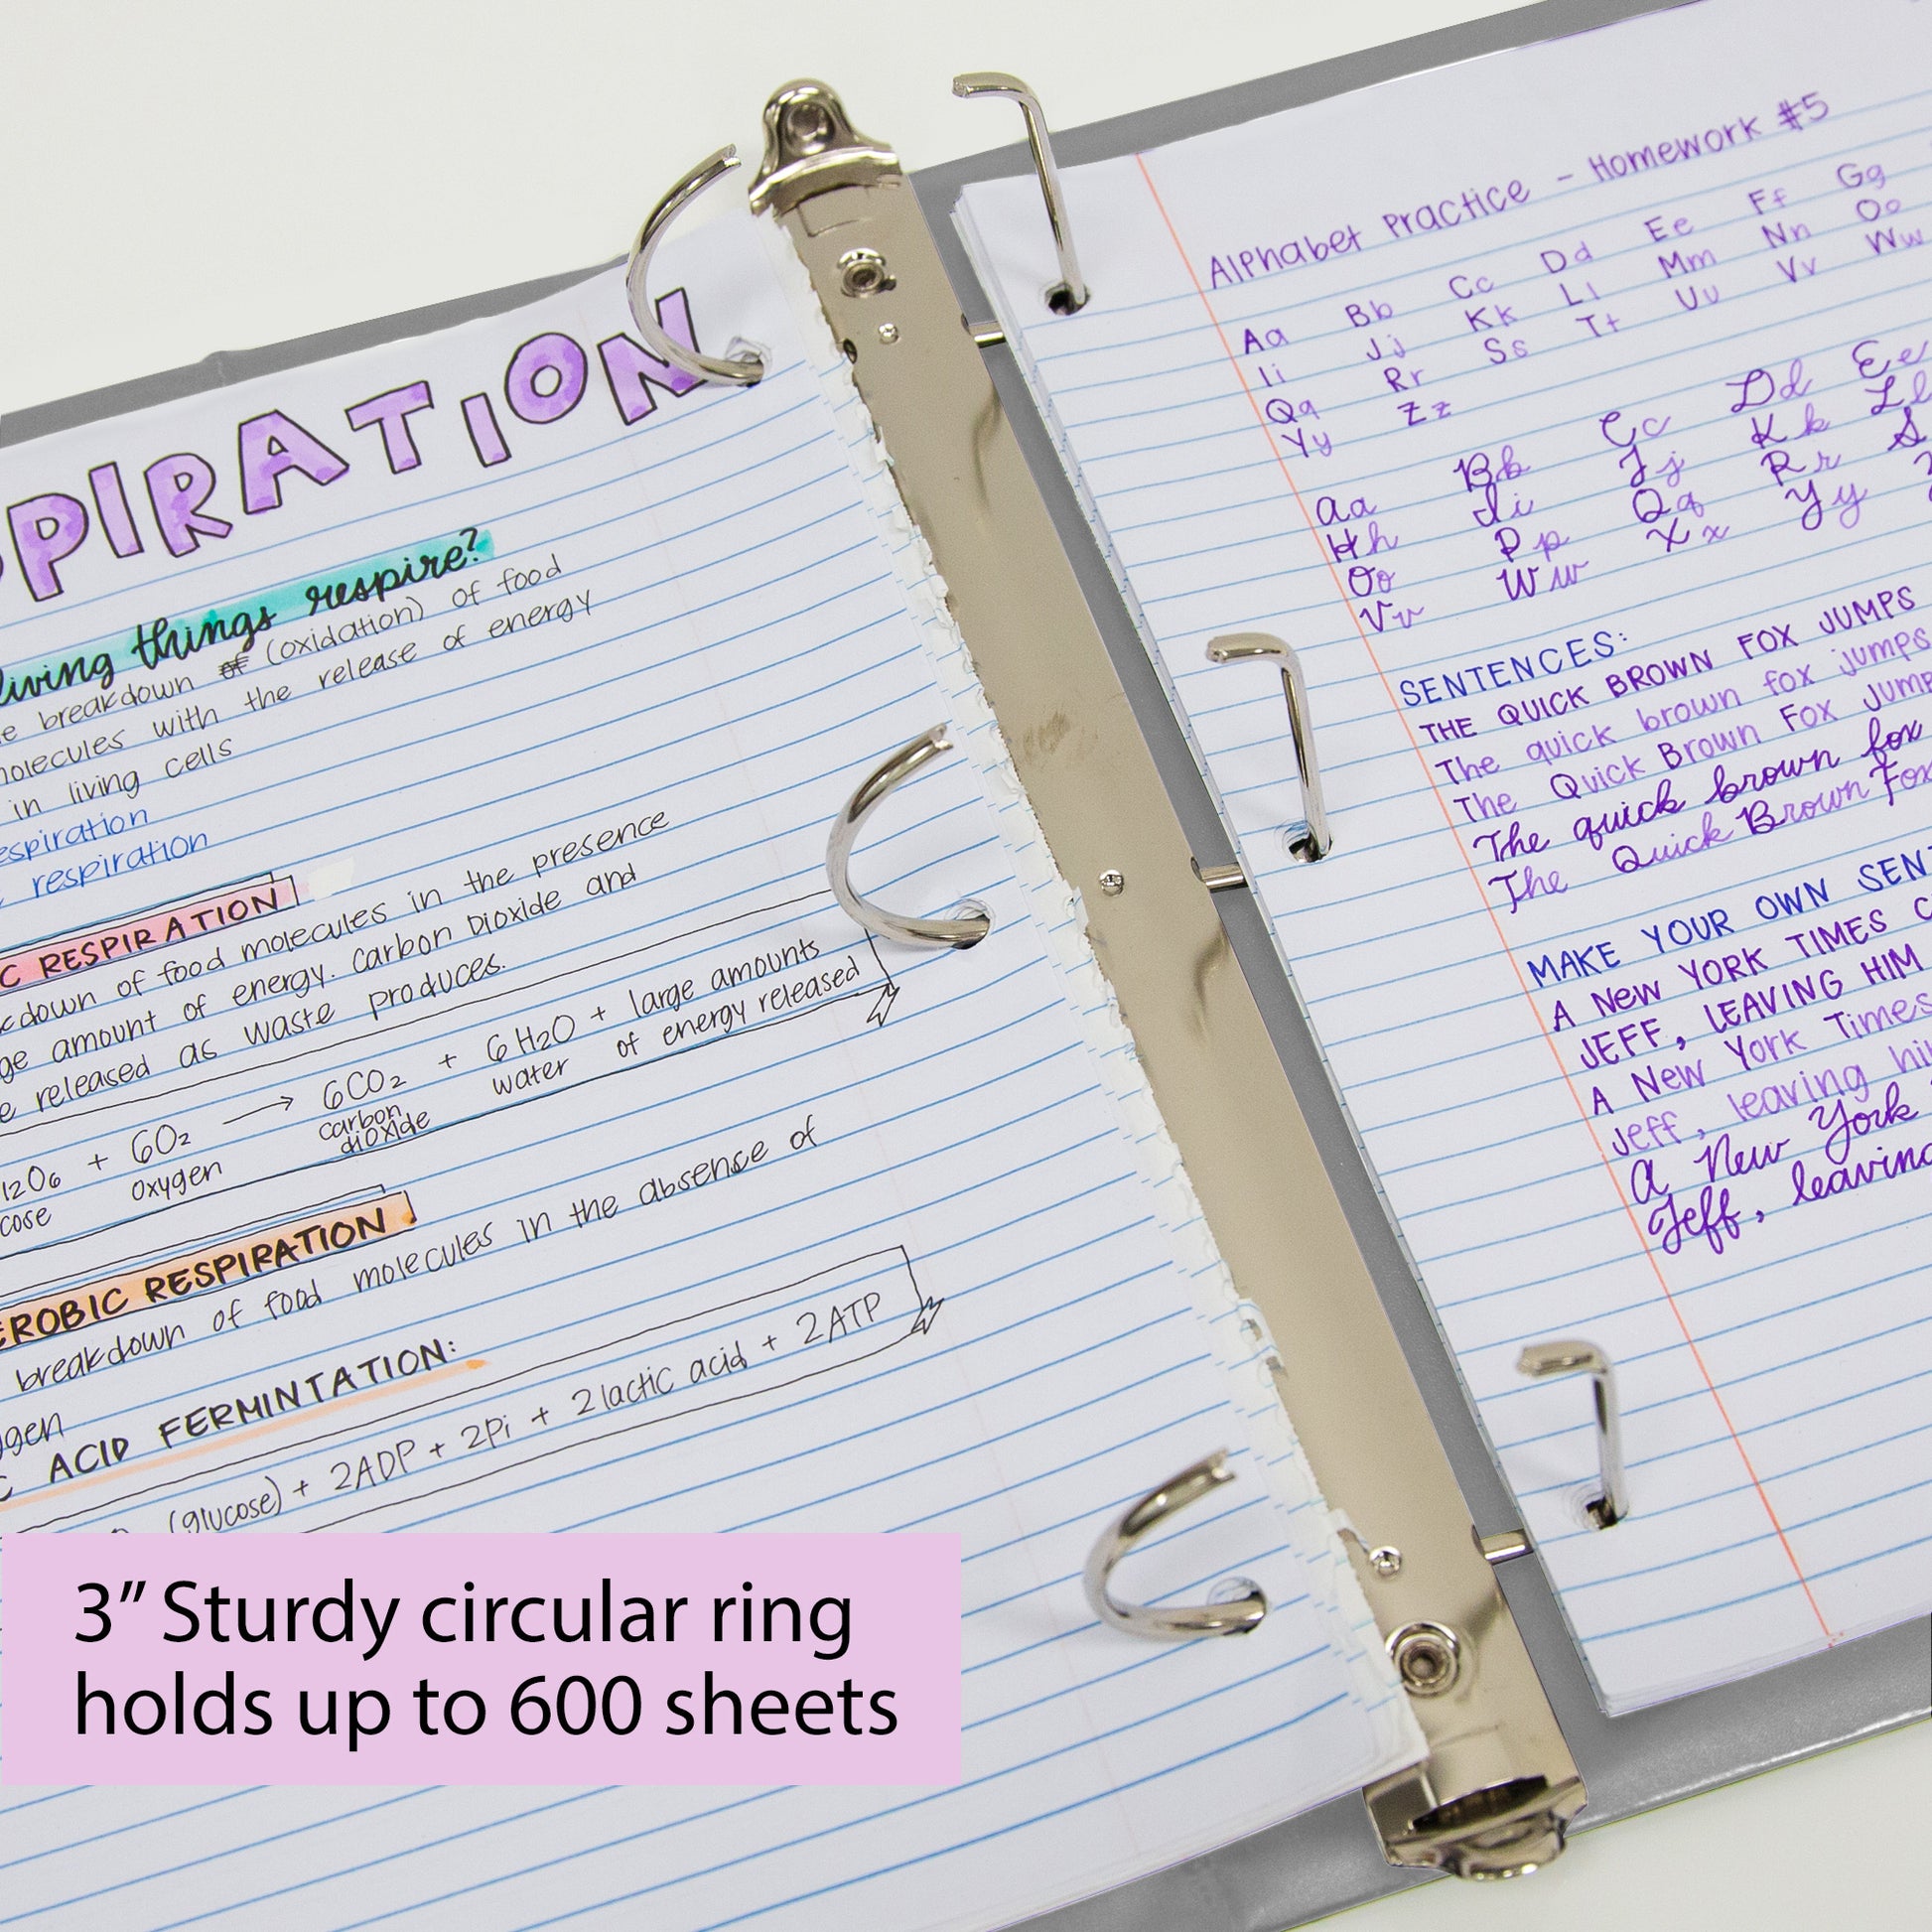 PIRATION
living things respire?
breakdown of (oxidation) of food
molecules with the release of energy
in living cells
respiration
respiration
C RESPIRATION
down of food molecules in the presence
amount of energy. Carbon Dioxide and
released as waste produces.
12O6 + 6O2 → 6CO2 + 6H2O + large amounts
cose oxygen carbon dioxide water of energy released
EROBIC RESPIRATION
breakdown of food molecules in the absence of
ygen
C ACID FERMINTATION:
(glucose) + 2ADP + 2Pi + 2lactic acid + 2ATP
Alphabet Practice - Homework #5
Aa Bb Cc Dd Ee Ff Gg
Ii Jj Kk Ll Mm Nn Oo
Qq Rr Ss Tt Uu Vv Ww
Yy Zz
Aa Bb Cc Dd Ee
Hh Ii Jj Kk Ll
Oo Pp Qq Rr S
Vv Ww Xx Yy
SENTENCES:
THE QUICK BROWN FOX JUMPS
The quick brown fox jumps
The Quick Brown Fox Jump
The quick brown fox
The Quick Brown Fox
MAKE YOUR OWN SENT
A New YORK TIMES C
JEFF, LEAVING HIM
A New York Times
Jeff, leaving hi
A New York
Jeff, leaving
3” Sturdy circular ring
holds up to 600 sheets